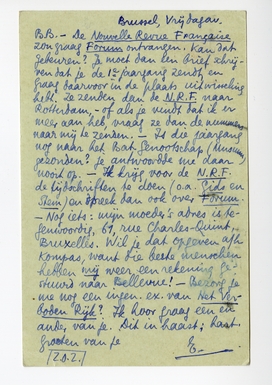 Brussel, Vrijdag.
B.B. — De Nouvelle Revue Française
zou graag Forum ontvangen. Kan dat
gebeuren? Je moet dan een brief schrij-
ven dat je de 1e jaargang zendt en
graag daarvoor in de plaats uitwisseling
hebt. Ze zenden dan de N.R.F. naar
Rotterdam, of als je vindt dat ik er
meer aan heb, vraag ze dan de nummers
naar mij te zenden. — Is die jaargang
nog naar het Bat. Genootschap (Museum)
gezonden? Je antwoordde me daar
nooit op. — Ik krijg voor de N.R.F.
de tijdschriften te doen (o.a. Gids en
Stem) en spreek dan ook over Forum.
— Nog iets: mijn moeder's adres is te-
genwoordig, 69, rue Charles-Quint,
Bruxelles. Wil je dat opgeven aan
Kompas, want die beste menschen
hebben mij weer een rekening ge-
stuurd naar Bellevue! — Bezorg je
me nog een ingen. ex. van Het Ver-
boden Rijk? Ik hoor graag een en
ander van je. Dit in haast; hart.
groeten van je
E.
[Z.O.Z.]